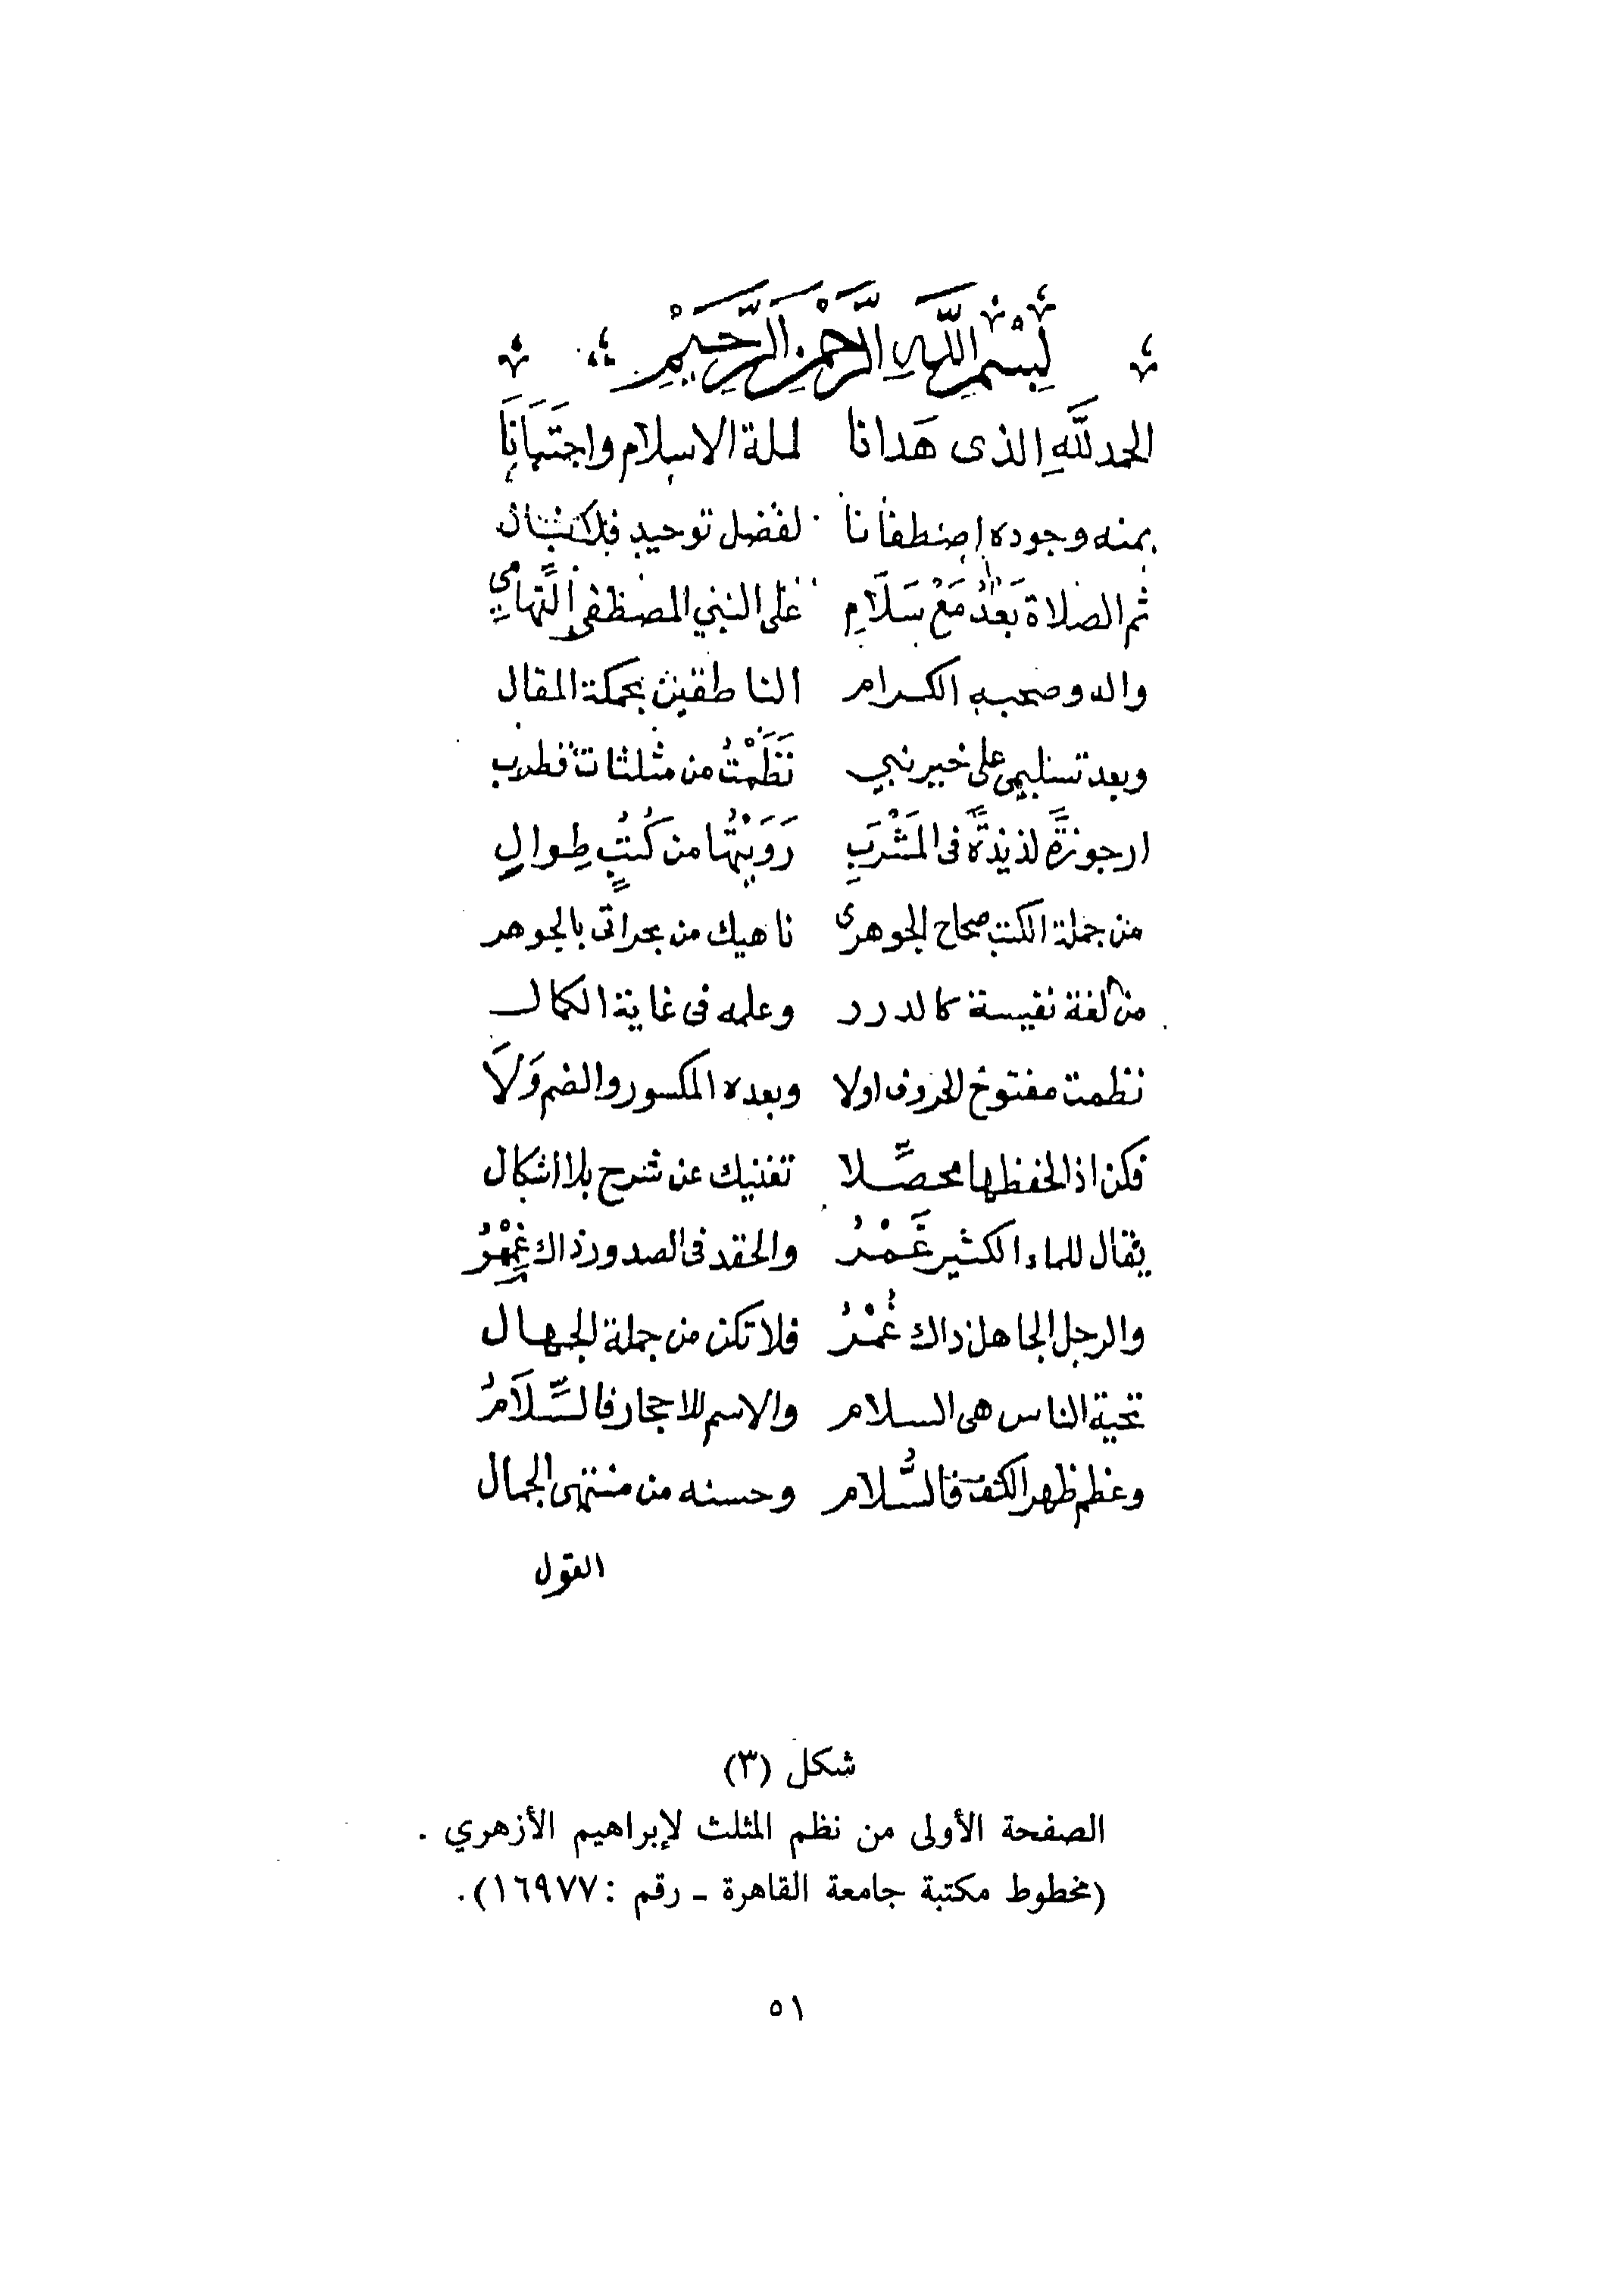 بِسْمِ اللَّهِ الرَّحْمَنِ الرَّحِيْمِ
الحمد للَّهِ الذى هَدانا لملة الاسلام واجتَبَانَا
بمنه وجوده اصطفانا لفضل توحيد
ثم الصلاة بَعدُ مَعْ سَلَامِ على النبي المصطفى التهامي
واله وصحبه الكرام الناطقين بحكمة المقال
وبعد تسليمى على خير نبي نَظَمْتُ من مثلثات قطرب
ارجوزةً لذيذةً فى المَشْرَبِ رَوَيْتُها من كُتُبٍ طِوالِ
من جملة الكتب صحاح الجوهرى ناهيك من بحر اتى بالجوهر
من لغة نفيسة كالدرر وعلمه فى غاية الكمال
نظمت مفتوح الحروف اولا وبعده المكسور والضم وَلَا
فكن اذا لحفظها محصِّلا تغنيك عن شرح بلا اشكال
يقال للماء الكثير غَمْرُ والحقد فى الصدور ذاك غِمْرُ
والرجل الجاهل ذاك غُمْرُ فلا تكن من جملة الجهال
تحية الناس هى السلام والاسم للاحجار فالسِّلَامُ
وعظم ظهر الكف فالسُّلام وحسنه من منتهى الجمال
القول
شكل (٣)
الصفحة الأولى من نظم المثلث لإبراهيم الأزهري .
(مخطوط مكتبة جامعة القاهرة ـ رقم : ١٦٩٧٧).
٥١